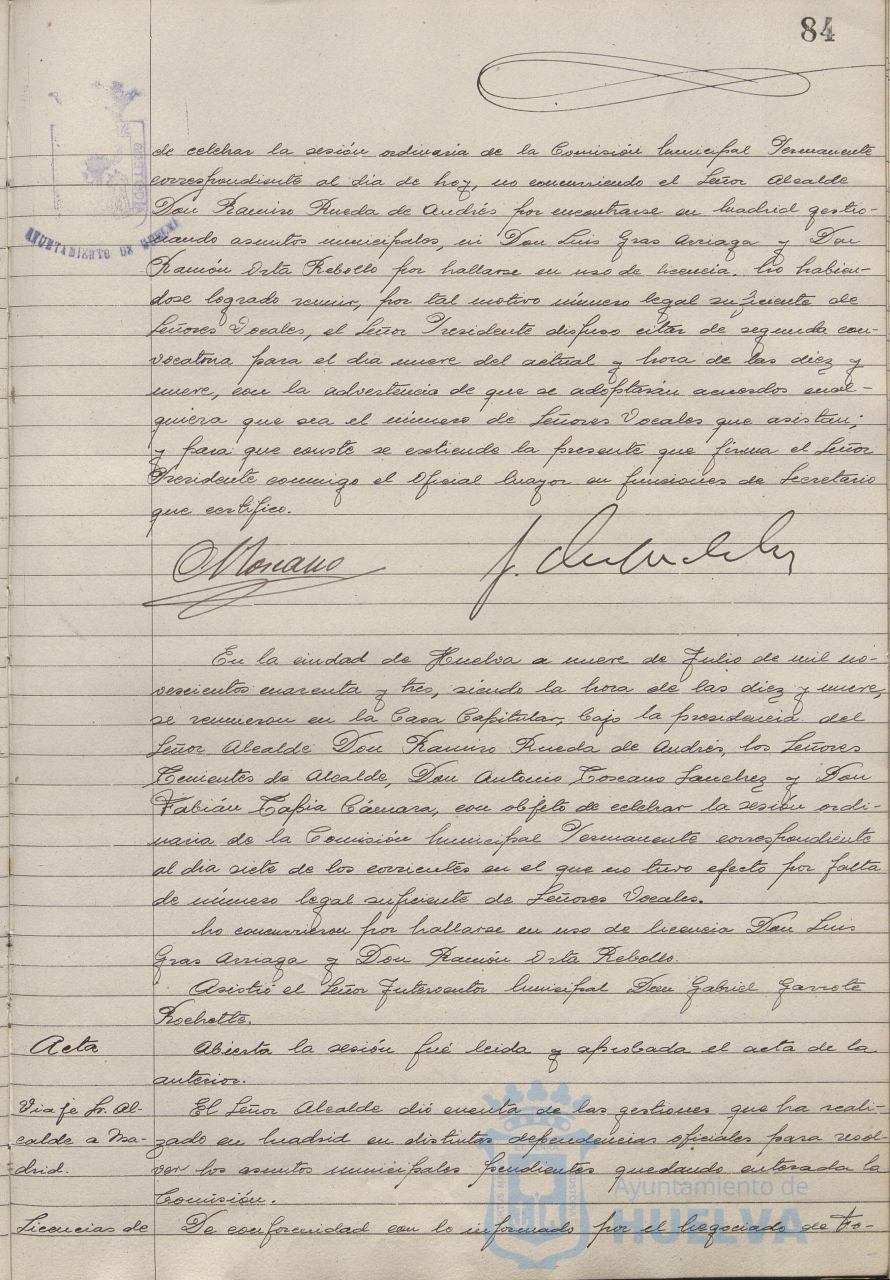 84
AYUNTAMIENTO DE HUELVA
de celebrar la sesión ordinaria de la Comisión Municipal Permanente
correspondiente al dia de hoy, no concurriendo el Señor Alcalde
Don Ramiro Rueda de Andrés por encontrarse en Madrid gestio-
nando asuntos municipales, ni Don Luis Gras Arriaga y Don
Ramón Orta Rebollo por hallarse en uso de licencia. No habien-
dose logrado reunir, por tal motivo número legal suficiente de
Señores Vocales, el Señor Presidente dispuso citar de segunda con-
vocatoria para el dia nueve del actual y hora de las diez y
nueve, con la advertencia de que se adoptarán acuerdos cual-
quiera que sea el número de Señores Vocales que asistan;
y para que conste se extiende la presente que firma el Señor
Presidente conmigo el Oficial Mayor en funciones de Secretario
que certifico.
A Toscano
En la ciudad de Huelva a nueve de Julio de mil no-
vescientos cuarenta y tres, siendo la hora de las diez y nueve,
se reunieron en la Casa Capitular, bajo la presidencia del
Señor Alcalde Don Ramiro Rueda de Andrés, los Señores
Tenientes de Alcalde, Don Antonio Toscano Sanchez y Don
Fabián Tapia Cámara, con objeto de celebrar la sesión ordi-
naria de la Comisión Municipal Permanente correspondiente
al dia siete de los corrientes en el que no tuvo efecto por falta
de número legal suficiente de Señores Vocales.
No concurrieron por hallarse en uso de licencia Don Luis
Gras Arriaga y Don Ramón Orta Rebollo.
Asistió el Señor Interventor Municipal Don Gabriel Garrote
Rochette.
Acta
Abierta la sesión fué leida y aprobada el acta de la
anterior.
Viaje Sr. Al-
calde a Ma-
drid.
El Señor Alcalde dió cuenta de las gestiones que ha reali-
zado en Madrid en distintas dependencias oficiales para resol-
ver los asuntos municipales pendientes quedando enterada la
Comisión.
Licencias de
De conformidad con lo informado por el Negociado de Fo-
Ayuntamiento de
HUELVA